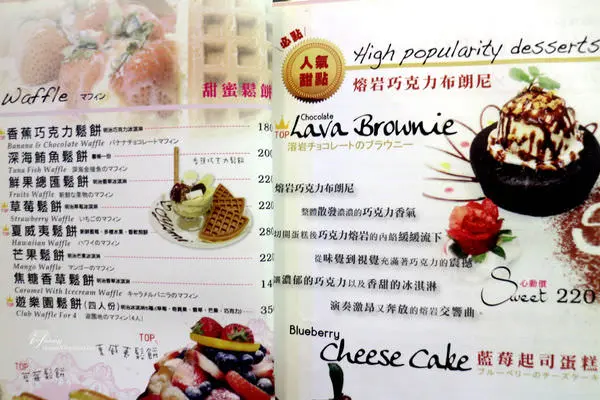 Waffle マフィン
甜蜜鬆餅
香蕉巧克力鬆餅 明治巧克力冰淇淋 180
Banana & Chocolate Waffle バナナチョコレートマフィン
深海鮪魚鬆餅 200
Tuna Fish Waffle 深海金槍魚のマフィン
鮮果總匯鬆餅 明治香草冰淇淋
Fruits Waffle 新鮮な果物のマフィン
草莓鬆餅 明治草莓冰淇淋
Strawberry Waffle いちごのマフィン
夏威夷鬆餅
Hawaiian Waffle ハワイのマフィン
芒果鬆餅 明治芒果冰淇淋
Mango Waffle マンゴーのマフィン
焦糖香草鬆餅 明治香草冰淇淋
Caramel With Icecream Waffle キャラメルバニラのマフィン
遊樂園鬆餅(四人份)
Club Waffle For 4 遊園地のマフィン(4人)
香蕉巧克力鬆餅
TOP
夏威夷鬆餅
TOP
草莓鬆餅
必點
人氣
甜點
High popularity desserts
熔岩巧克力布朗尼
TOP
Chocolate
Lava Brownie
溶岩チョコレートのブラウニー
熔岩巧克力布朗尼
整體散發濃濃的巧克力香氣
切開蛋糕後巧克力熔岩的內餡緩緩流下
從味覺到視覺充滿著巧克力的震撼
讓濃郁的巧克力以及香甜的冰淇淋
演奏激昂又奔放的熔岩交響曲。
心動價
Sweet 220
Blueberry
Cheese Cake 藍莓起司蛋糕
ブルーベリーのチーズケーキ